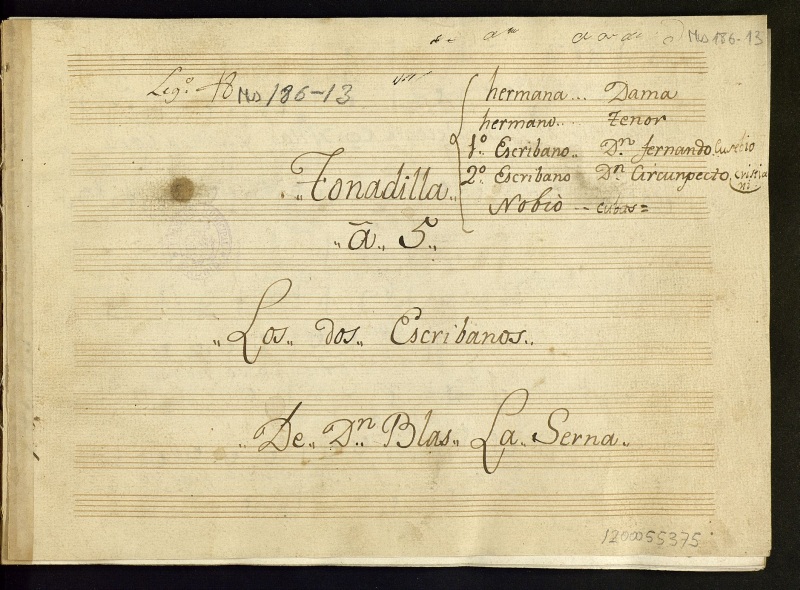 Mus 186-13
Leg.º 18 Mus 186-13
hermana... Dama
hermano... tenor
1.º Escribano.. D.n fernando Eusebio
2.º Escribano D.n Circunpecto, cristia
ni
Nobio -- cubas =
„Tonadilla„
„ā„ 5„
„Los„ dos„ Escribanos„
„De„ D.n Blas„ La„ Serna„
1200055375